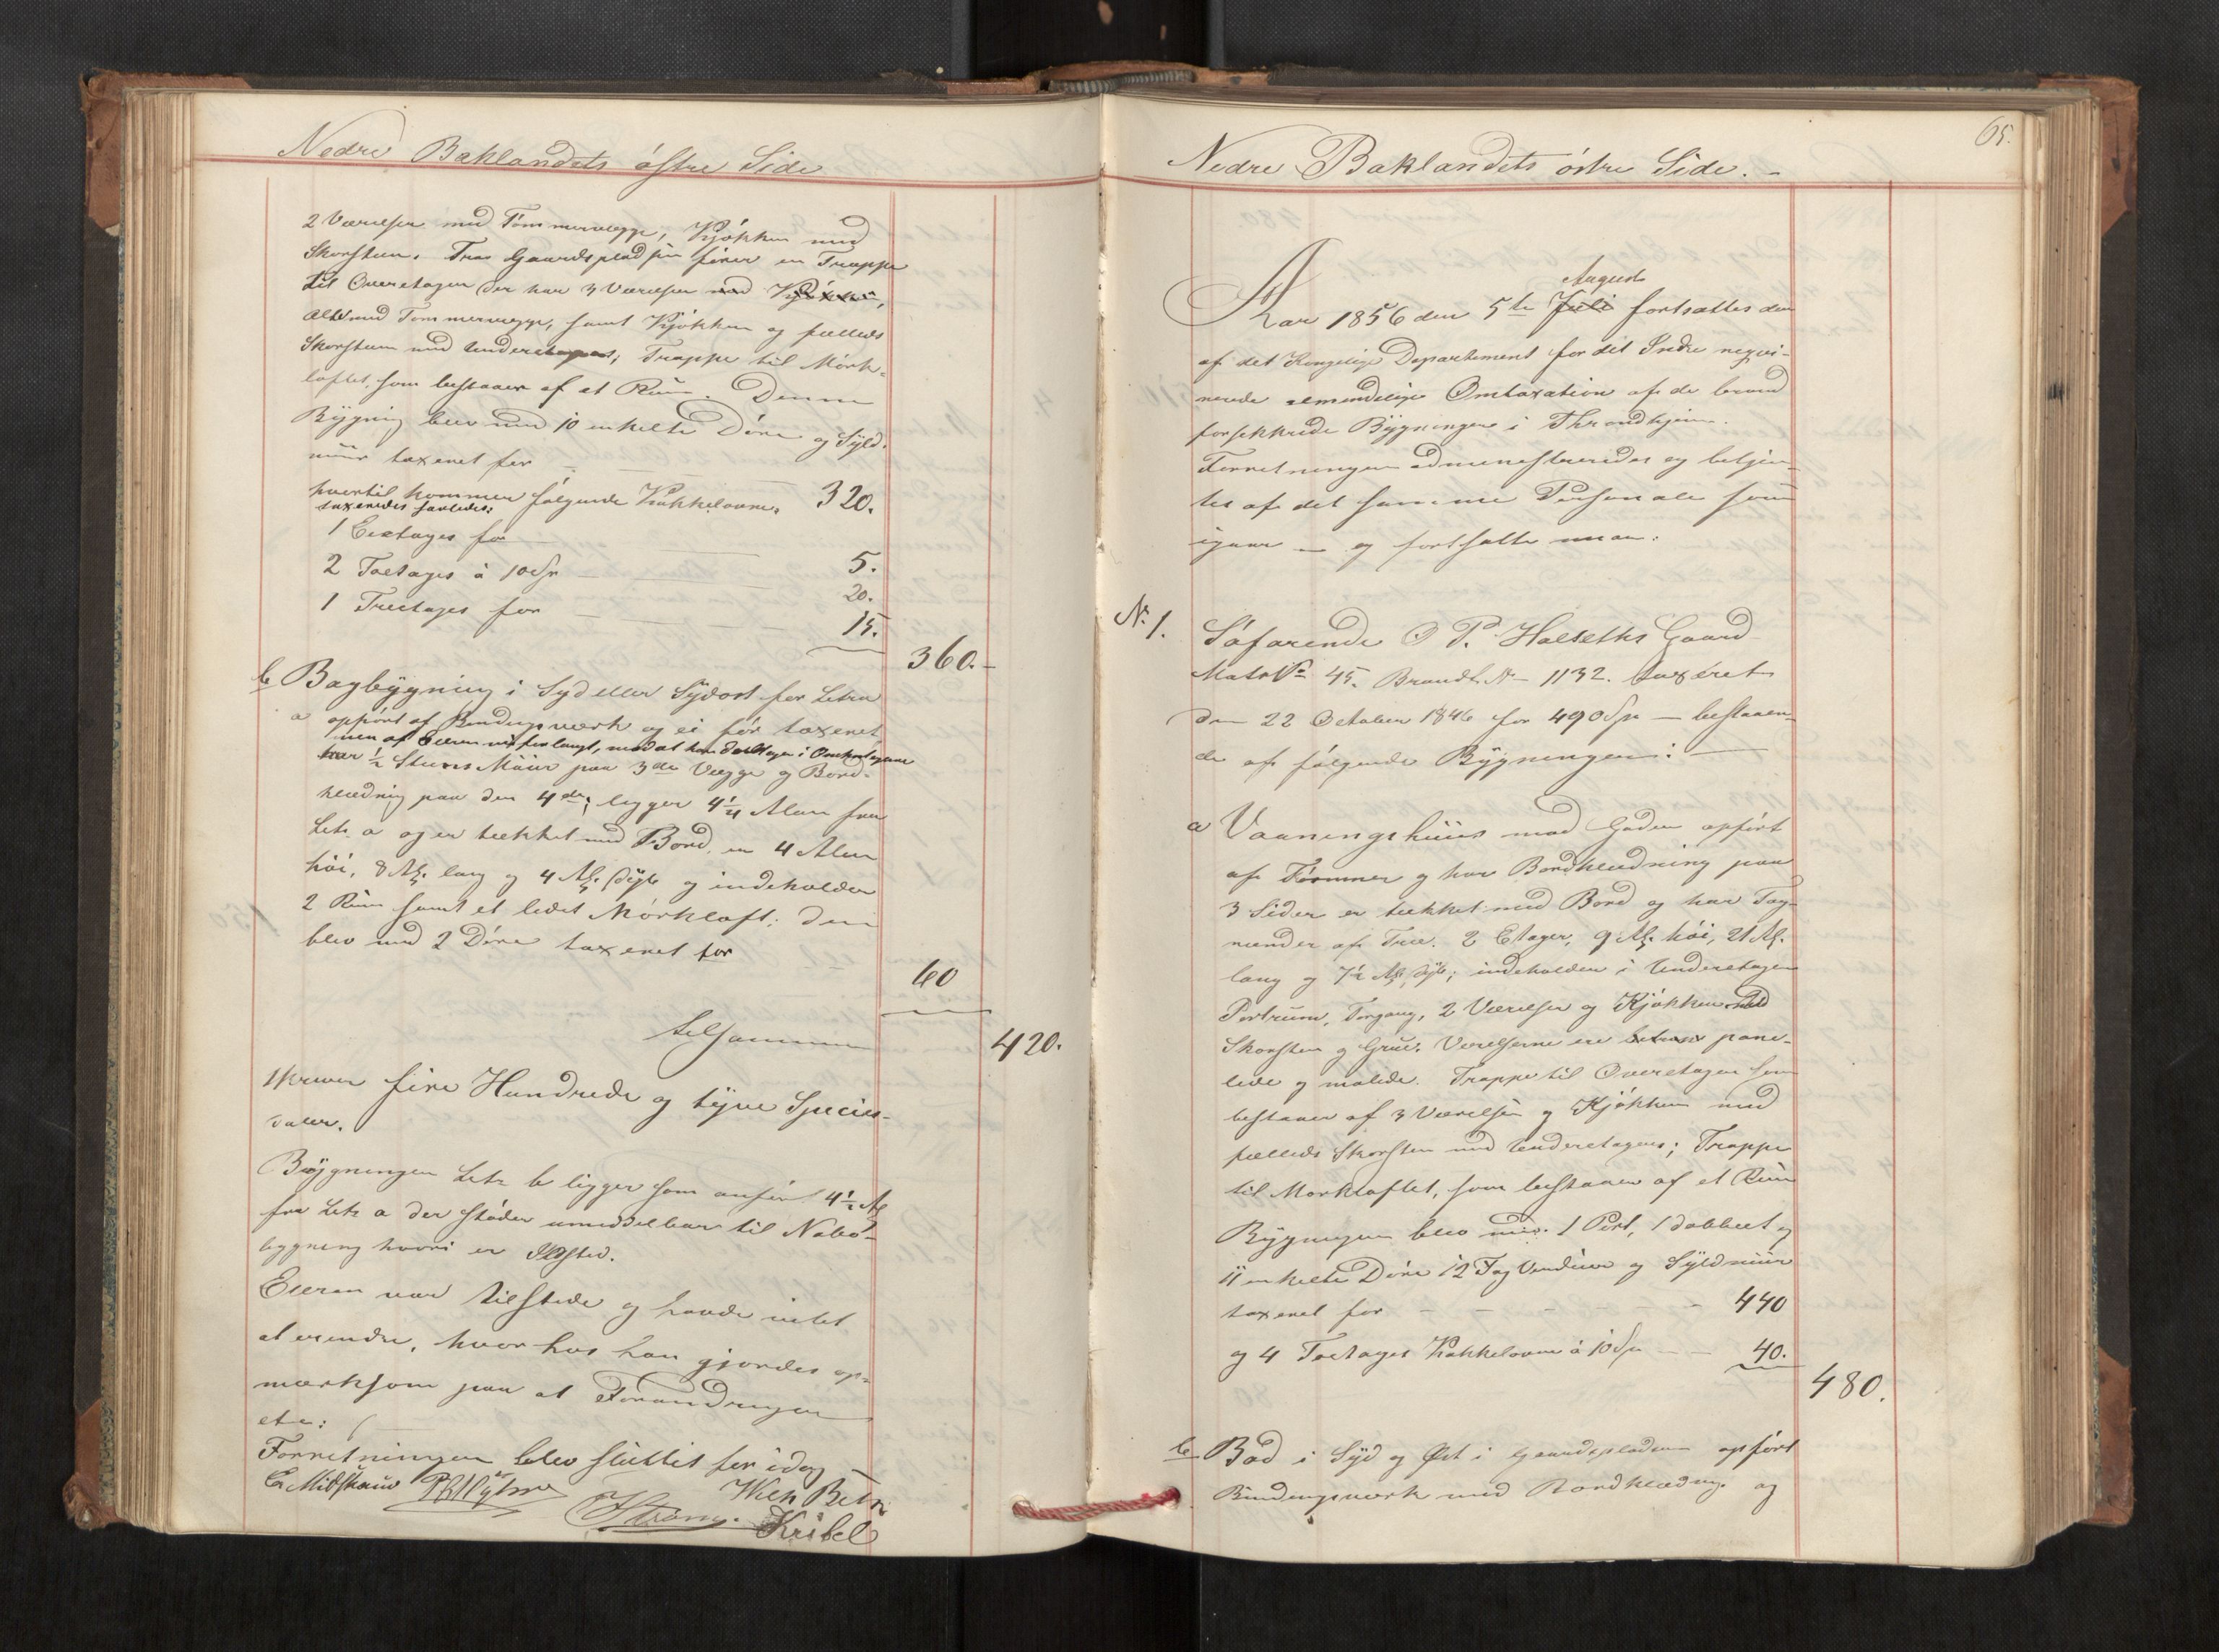 Nedre Baklandets östre Side
2 Værelser med Tömmervægge, Kjökken med
Skorsteen. Fra Gaardspladsen förer en Trappe
til Overetagen der har 3 Værelser med Kjökken,
alle med Tömmervægge, samt Kjökken og fælleds
Skorsteen med Underetagens; Trappe til Mörk-
loftet, som bestaaer af et Rum. Denne
Bÿgning blev med 10 enkelte Döre og Sÿld-
muur taxeret for
320.
hvortil kommer fölgende Kakkelovne,
taxeredes saaledes:
1 Eenetages for
5.
2 Toetages à 10 Spr
20.
1 Treetages for
15.
360.-
b Bagbÿgning i Sÿd eller Sÿdost for Litra
a opfört af Bindingsværk og ei för taxeret
men af Eieren nu forlangt, med at han deeltager i Omkostningerne
har ½ Steens Muur paa 3de Vægge og Bord-
klædning paa den 4de; ligger 4½ Alen fra
Litr. a og er tækket med Bord, er 4 Alen
höi, 8 Al. lang og 4 Al. dÿb og indeholder
2 Rum samt et lidet Mörkloft; den
blev med 2 Döre taxeret for
60
tilsammen
420.
skriver fire Hundrede og tÿve Species-
daler.
Bÿgningen Litr b ligger som anfört 4½ Al
fra Litr a der stöder umiddelbar til Nabo-
bygning hvori er Ildsted.
Eieren var tilstede og havde intet
at erindre, hvorhos han gjordes op-
mærksom paa at Forandringer
etc:
Forretningen blev sluttet for idag
Wilh Betn
Kribel
65.
Nedre Baklandets östre Side. -
August
Aar 1856 den 5te Juli fortsattes den
af det Kongelige Departement for det Indre reqvi-
rerede almindelige Omtaxation af de brand
forsikkrede Bÿgninger i Throndhjem.
Forretningen administreredes og betjen-
tes af det samme Personale som
igaar - og fortsatte man:
No 1. Söfarende O P. Halseths Gaard
Matr No 45. Brandt. No 1132. taxeret
den 22 October 1846 for 490 Spr - bestaaen-
de af fölgende Bÿgninger:
a Vaaningshuus mod Gaden opfört
af Tömmer og har Bordklædning paa
3 Sider er tækket med Bord og har Tag-
render af Træe. 2 Etager, 9 Al. höi, 21 Al.
lang og 7½ Al dÿb; indeholder i Underetagen
Portrum, Forgang, 2 Værelser og Kjökken med
Skorsten og Grue. Værelserne ere betrux pane-
lede og malede. Trappe til Overetagen som
bestaaer af 3 Værelser og Kjökken med
fælleds Skorsten med Underetagens; Trappe
til Mörkloftet, som bestaaer af et Rum
Bÿgningen blev med 1 Port, 1 dobbelt og
11 enkelte Döre 12 Fag Vinduer og Sÿldmuur
taxeret for
440
og 4 Toetages Kakkelovne à 10 Spr
40.
480.
b Bod i Sÿd og Öst i Gaardspladsen opfört
Bindingsværk med Bordklædning og